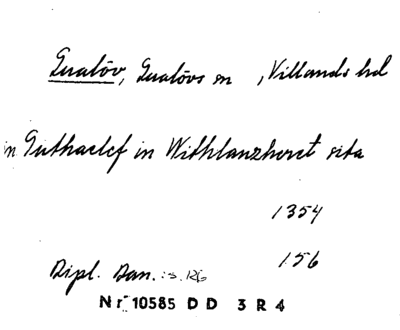 Gualöv, Gualövs sn, Villands hd
in Guthaelef in Withlanzheret sita
1354
156
Dipl. Dan. :s. RG
Nr 10585 D D 3 R 4